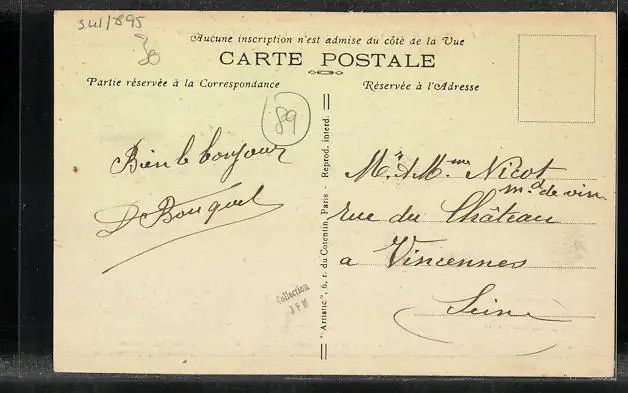 Aucune inscription n'est admise du côté de la Vue
CARTE POSTALE
Partie réservée à la Correspondance
Réservée à l'Adresse
30
89
Bien le bonjour
D Bouquet
"Artistic", 6, r. du Cotentin, Paris - Reprod. interd.
Collection
JFM
Mr & Mme Nicot
md de vin
rue du Château
a Vincennes
Seine